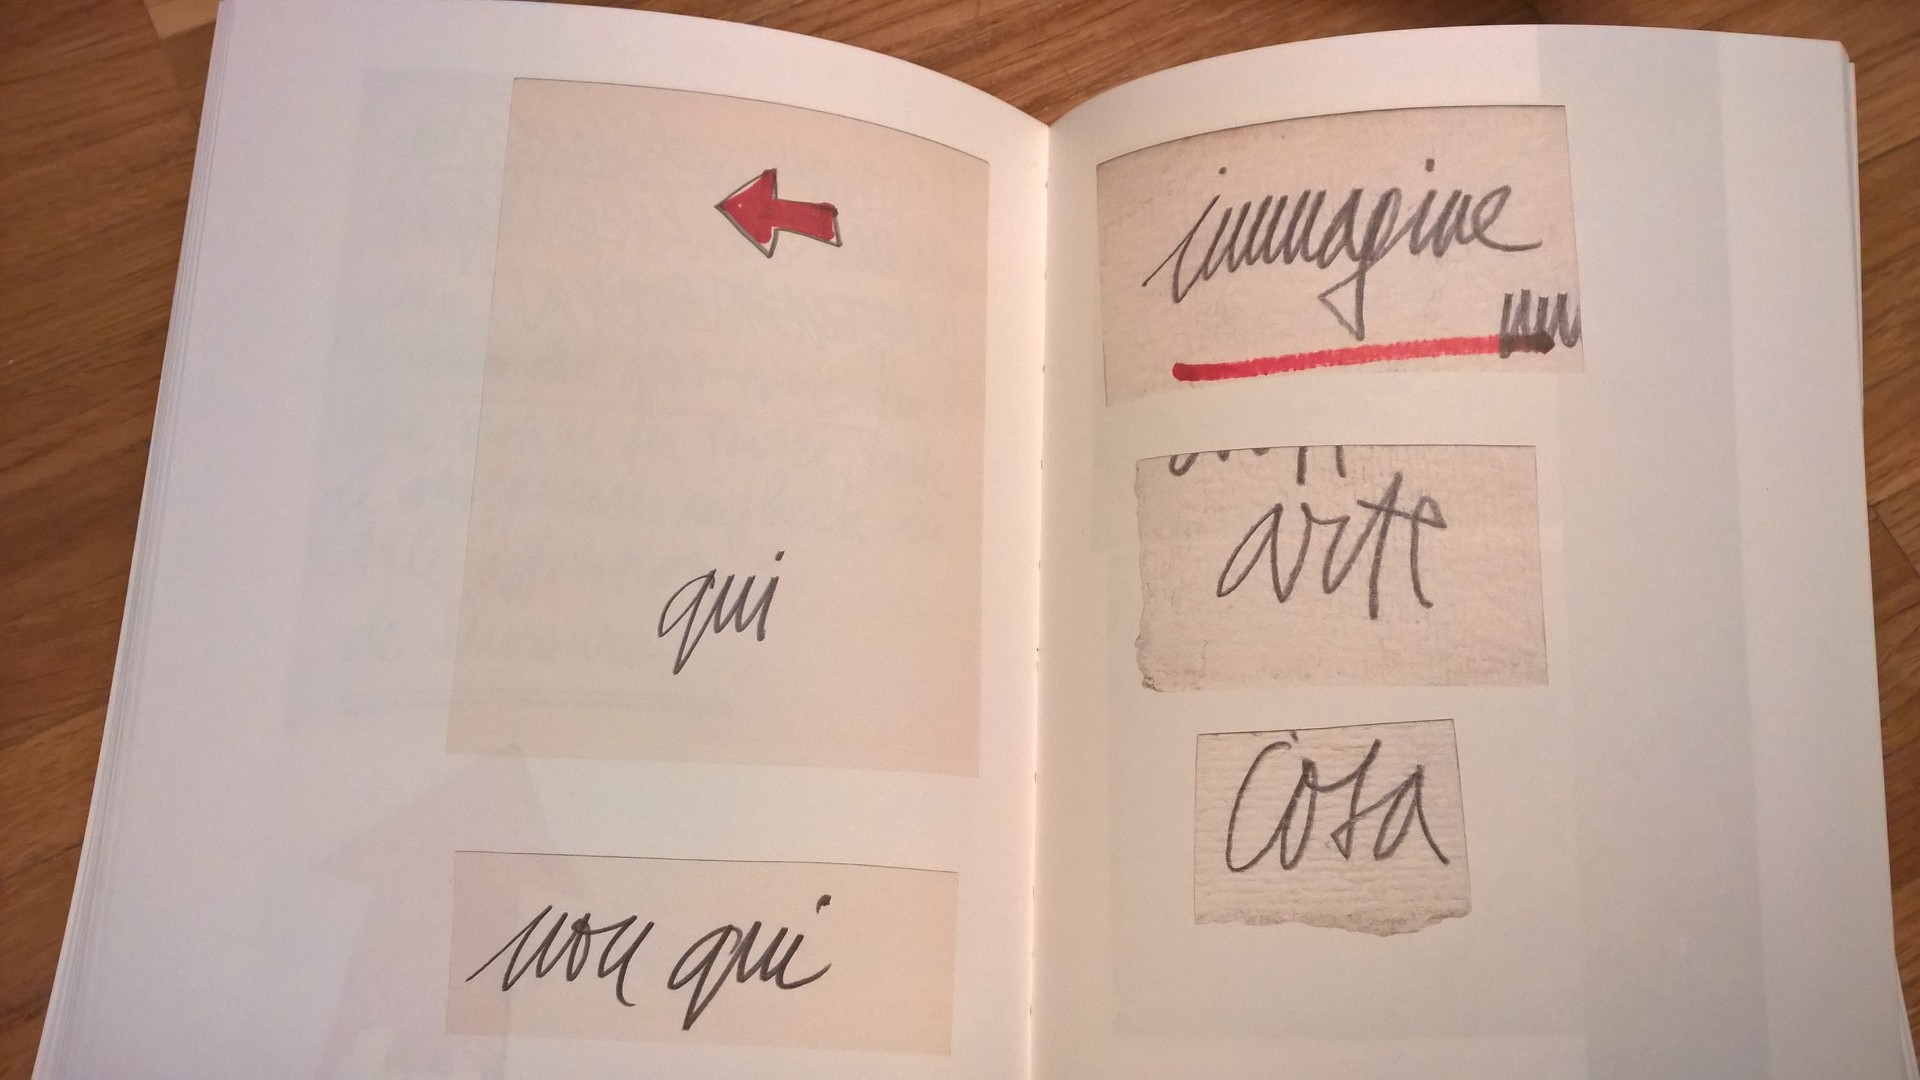 qui
non qui
immagine
arte
cosa